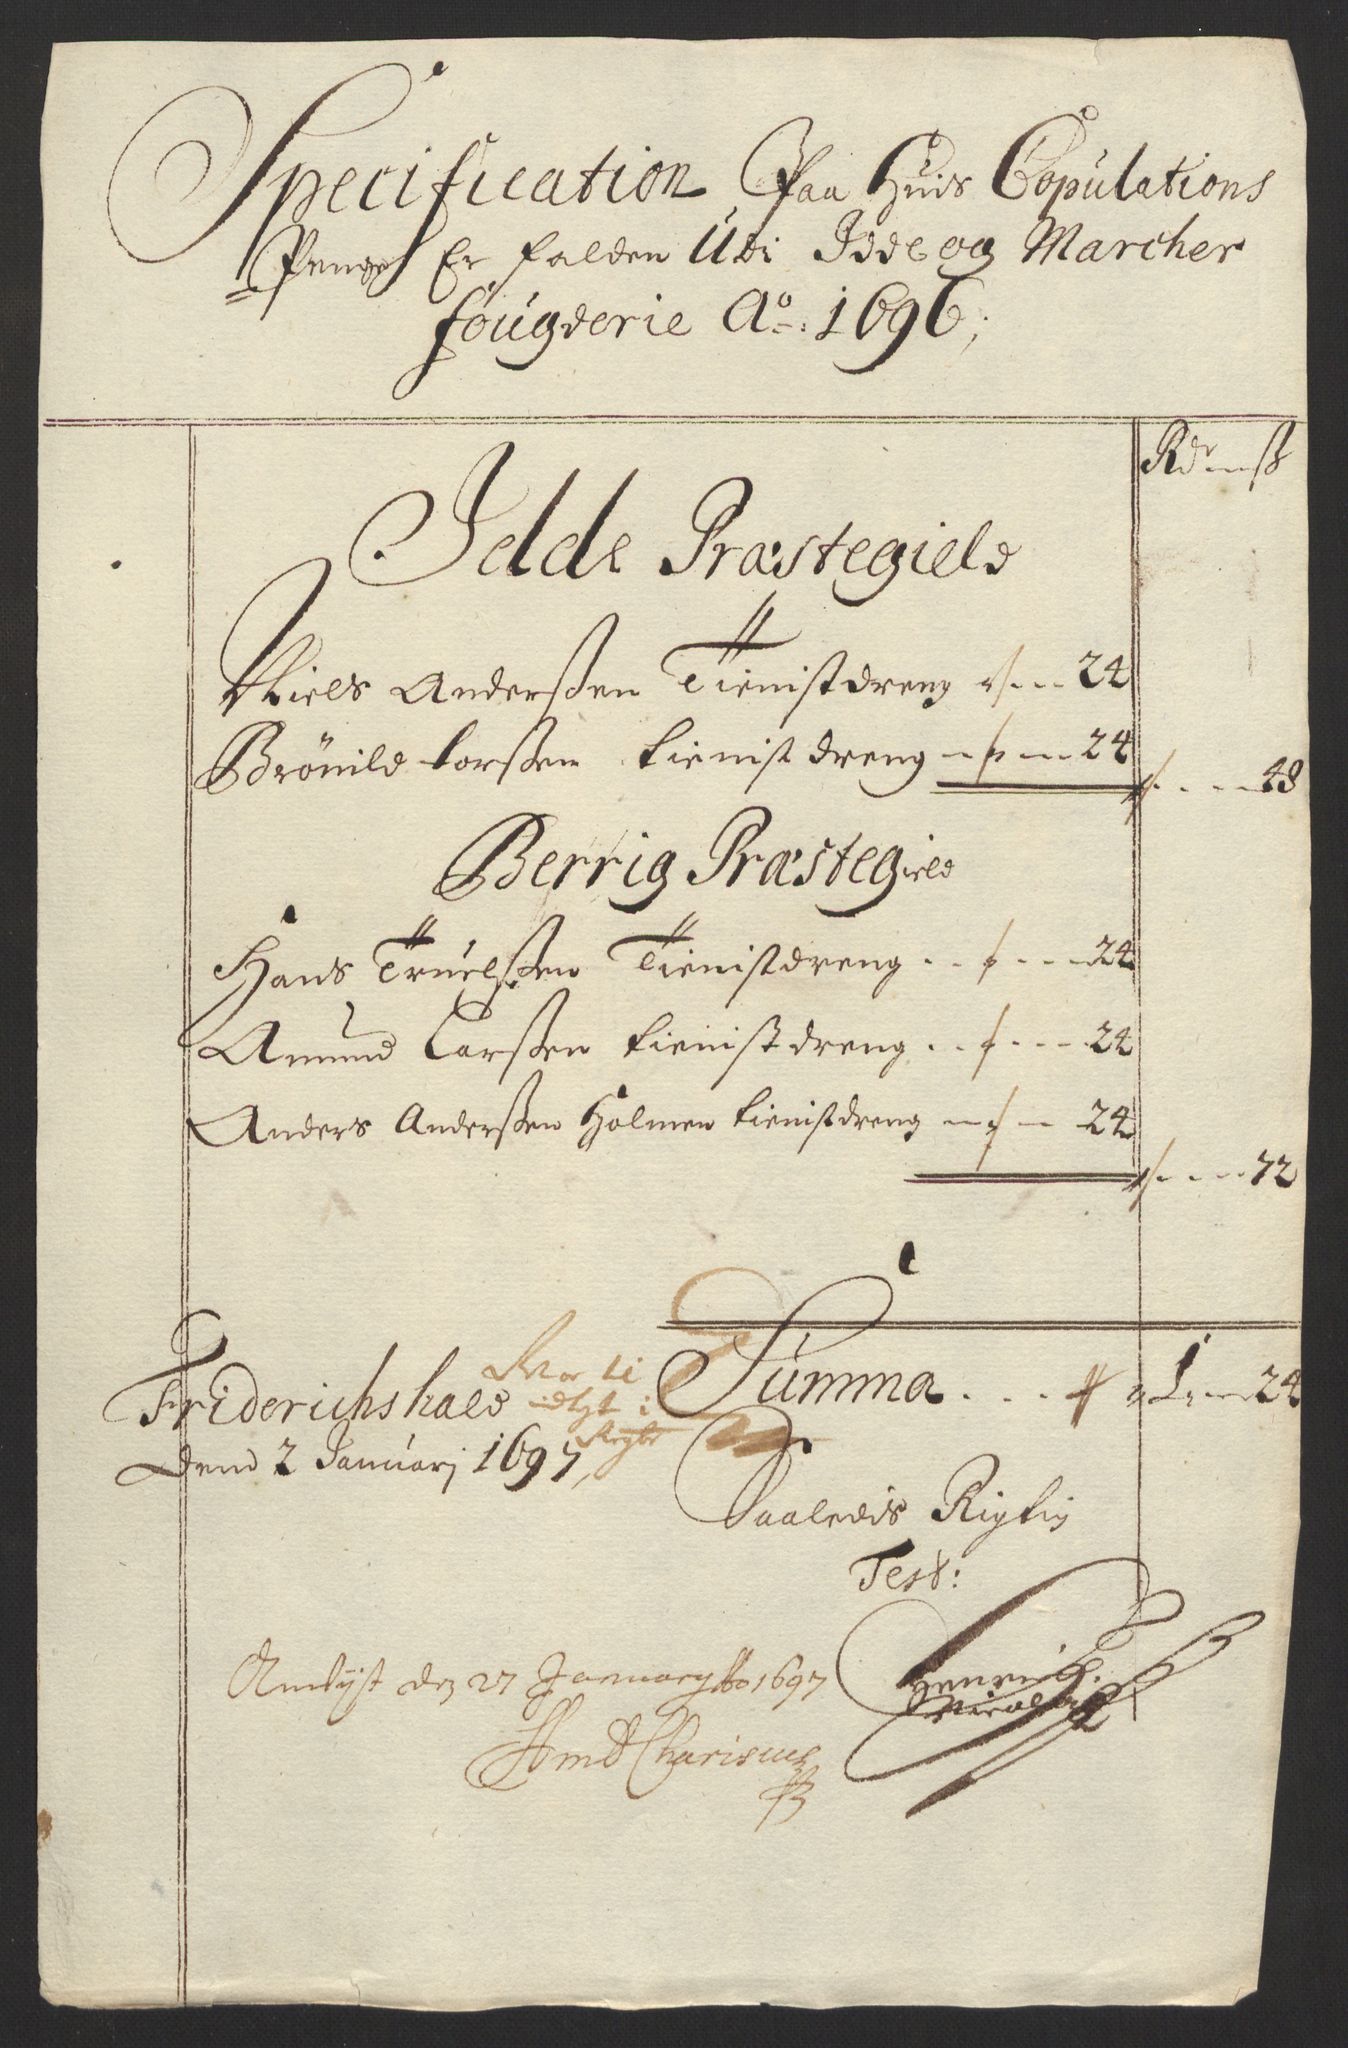 Specification Paa Huis Copulations
Penge Er falden Udi Idde og Marcher
fougderie Ao: 1696;
Rdr mß
Idde Præstegield
Niels Anderßen Tienistdreng 24
Brönild Lorßen tienist dreng 24
48
Berrig Præstegield
Hans Truelßen Tienistdreng 24
Amund Larßen tienist dreng 24
Anders Anderßen Holmen tienistdreng 24
72
Summa 1 24
Friderichshald
dend 2 Januarj 1697,
Saaledis Rigtig
Test:
Henrich
den 27 January Ao 1697
Charisius